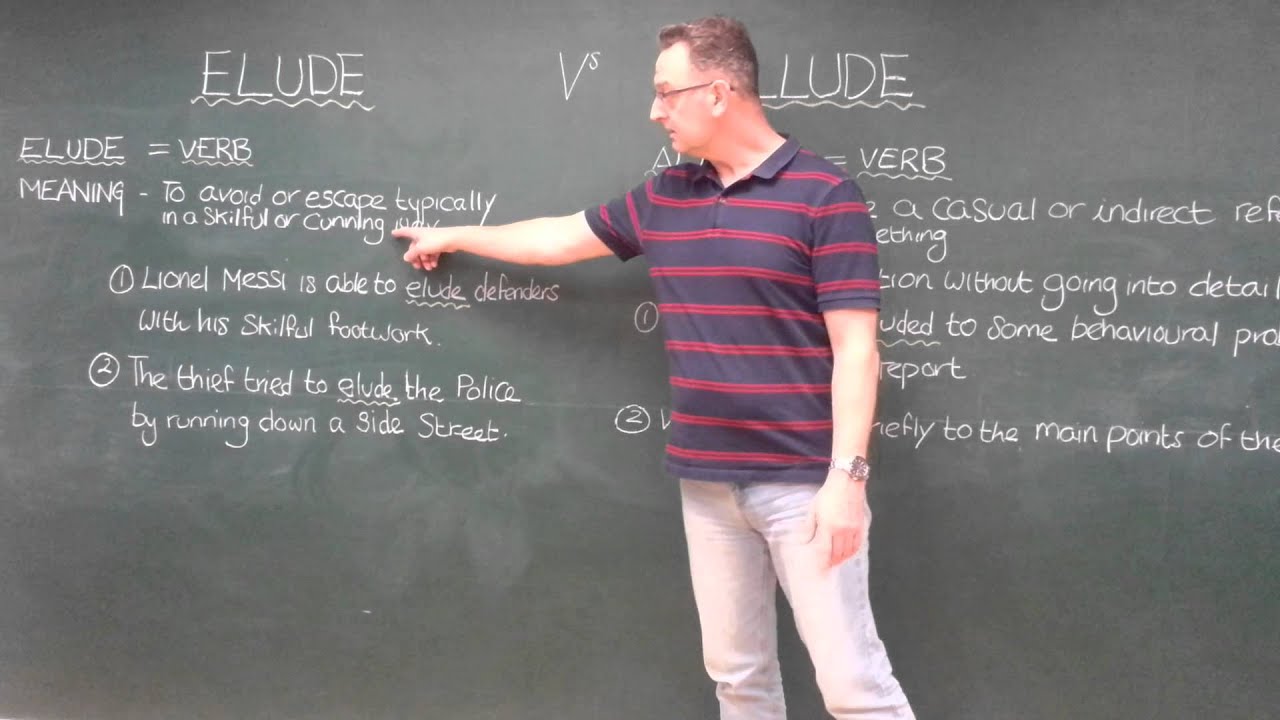 ELUDE Vs LLUDE
ELUDE = VERB
MEANING - To avoid or escape typically
in a skilful or cunning way
① Lionel Messi is able to elude defenders
with his skilful footwork.
② The thief tried to elude the Police
by running down a side street.
= VERB
a casual or indirect ref
ething
tion without going into detail
① uded to some behavioural pro
report
② iefly to the main points of the